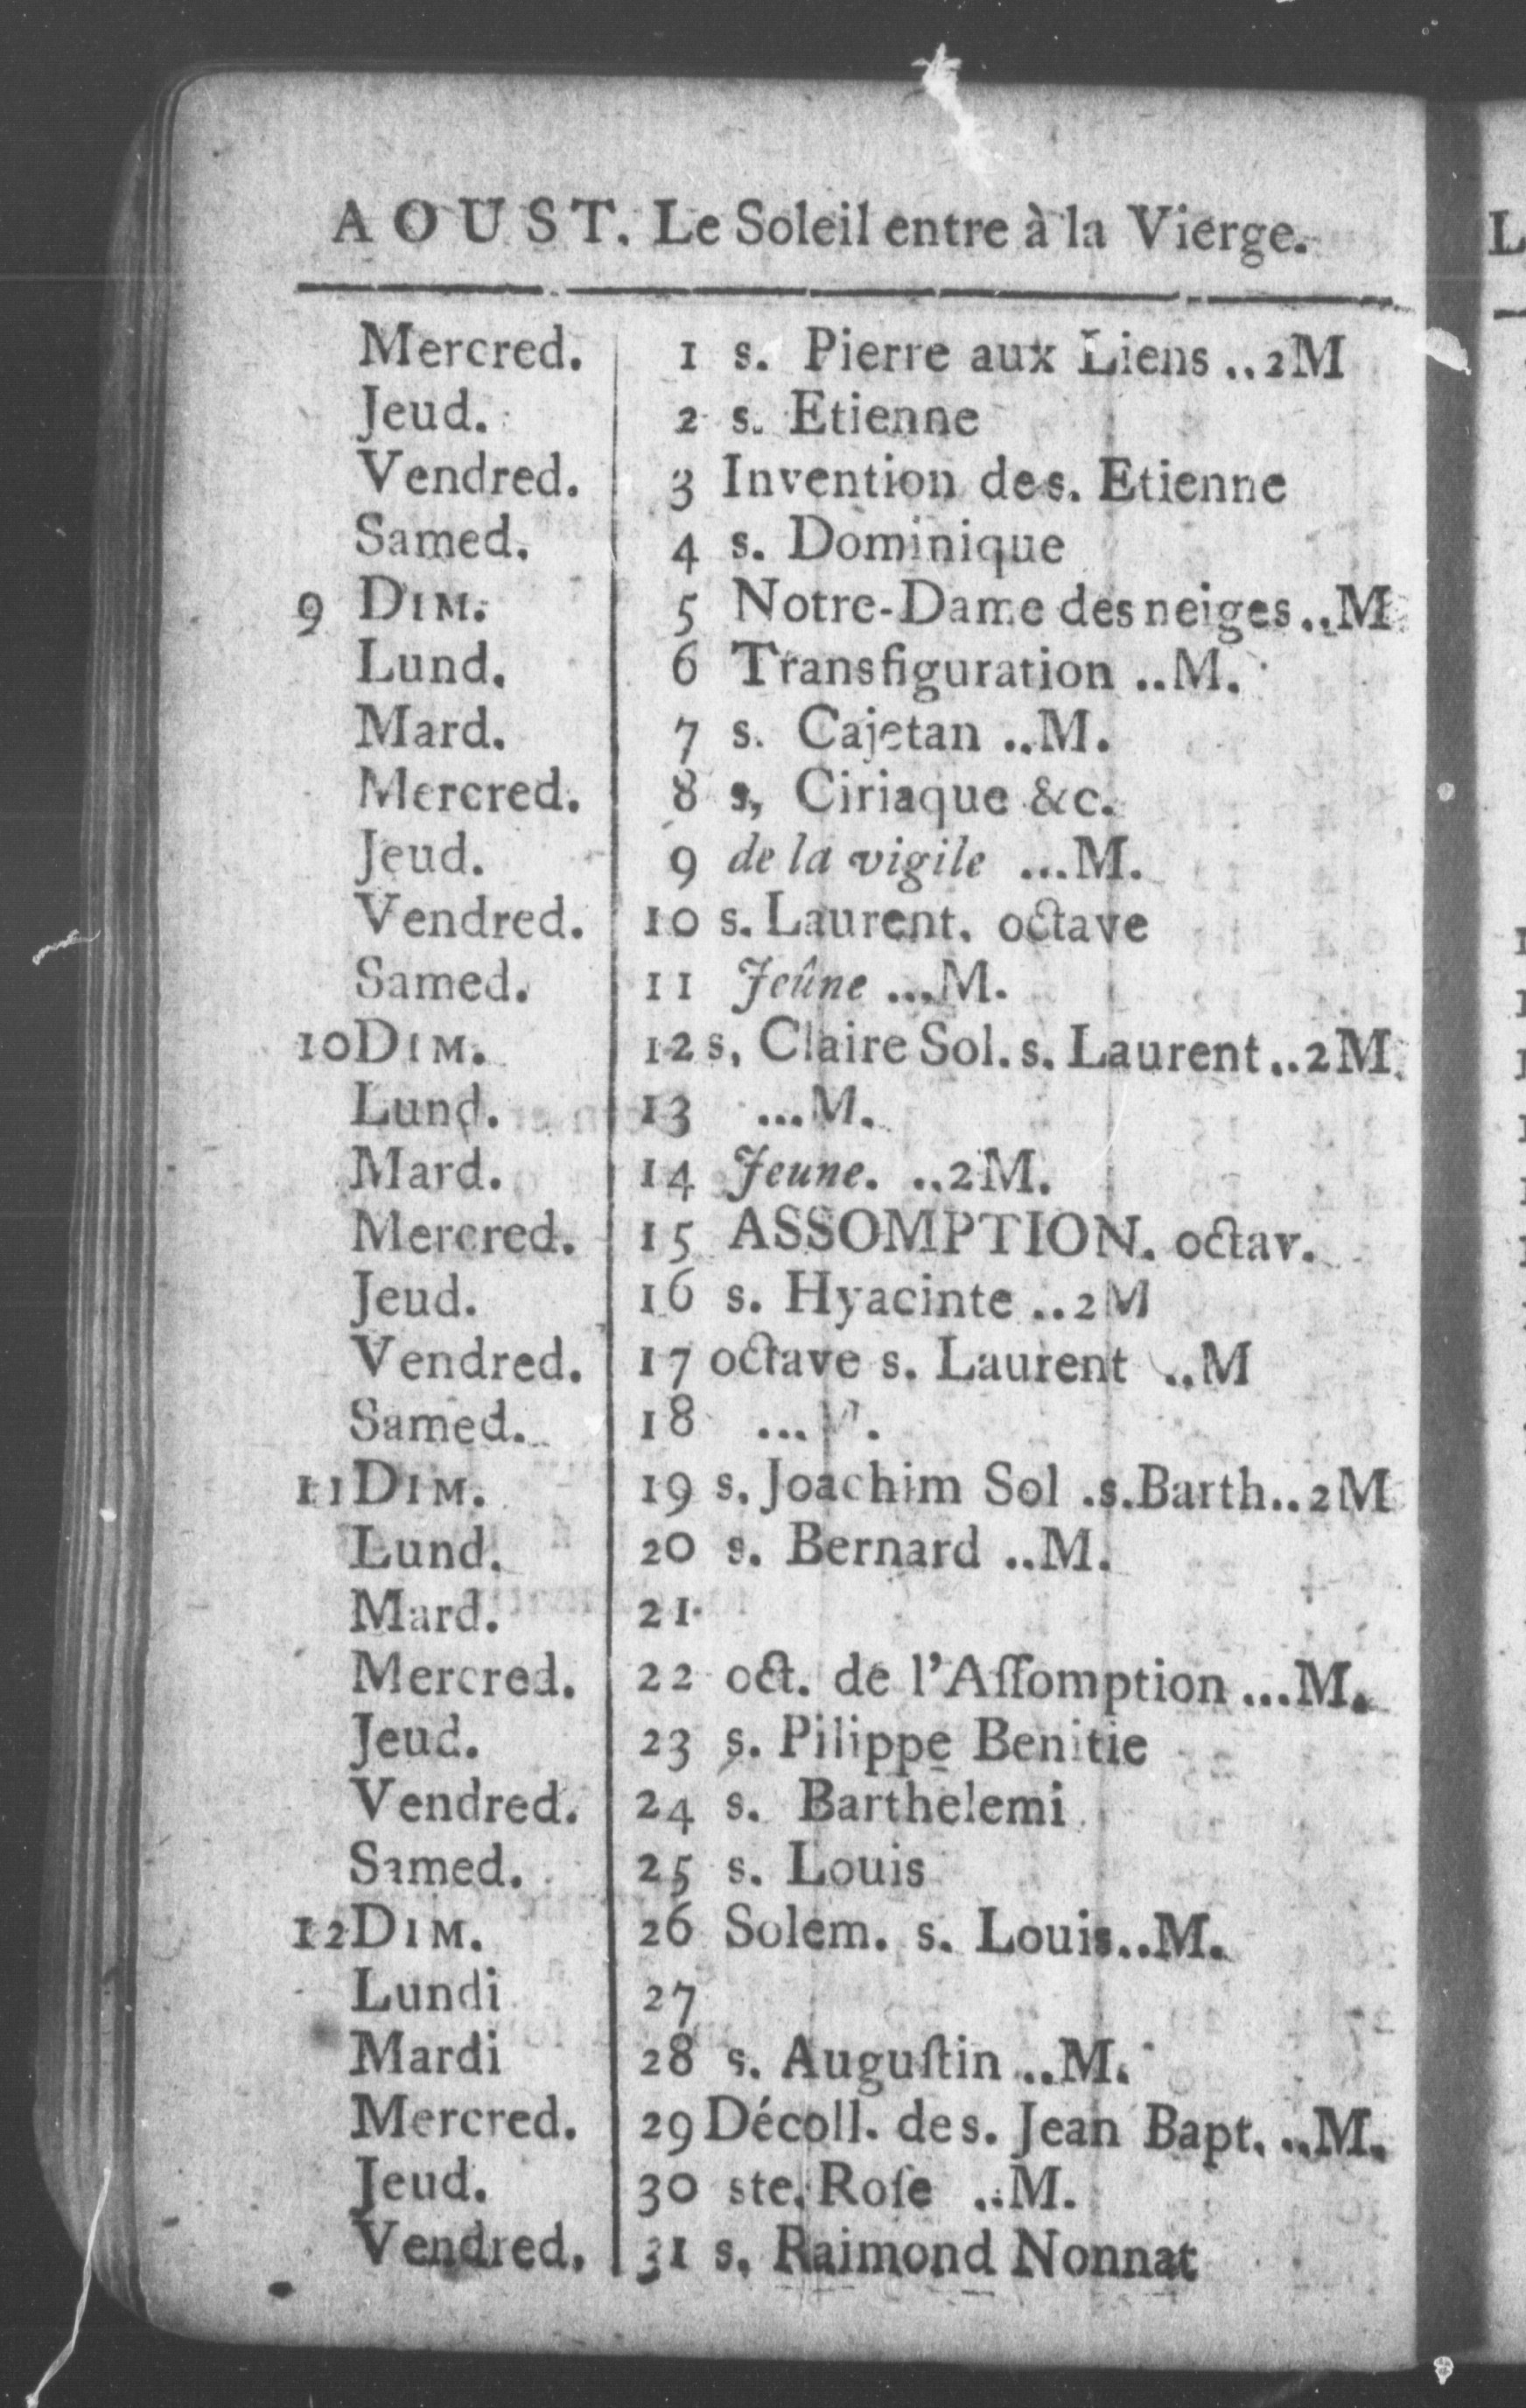 AOUST. Le Soleil entre à la Vierge.
Mercred. 1 s. Pierre aux Liens ..2M
Jeud. 2 s. Etienne
Vendred. 3 Invention de s. Etienne
Samed. 4 s. Dominique
9 DIM. 5 Notre-Dame des neiges..M
Lund. 6 Transfiguration ..M.
Mard. 7 s. Cajetan ..M.
Mercred. 8 s, Ciriaque &c.
Jeud. 9 de la vigile ...M.
Vendred. 10 s. Laurent. octave
Samed. 11 Jeûne ...M.
10 DIM. 12 s, Claire Sol. s. Laurent..2M
Lund. 13 ...M.
Mard. 14 Jeune. ..2M.
Mercred. 15 ASSOMPTION. octav.
Jeud. 16 s. Hyacinte ..2M
Vendred. 17 octave s. Laurent ..M
Samed. 18 ...M.
11 DIM. 19 s. Joachim Sol .s.Barth..2M
Lund. 20 s. Bernard ..M.
Mard. 21
Mercred. 22 oct. de l'Aſſomption ...M.
Jeud. 23 s. Pilippe Benitie
Vendred. 24 s. Barthelemi
Samed. 25 s. Louis
12 DIM. 26 Solem. s. Louis..M.
Lundi 27
Mardi 28 s. Auguſtin ..M.
Mercred. 29 Décoll. de s. Jean Bapt. ..M.
Jeud. 30 ste. Roſe ..M.
Vendred. 31 s. Raimond Nonnat